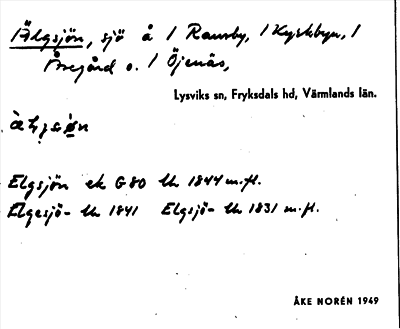 Älgsjön, sjö å 1 Ransby, 1 Kyrkbyn, 1
Åregård o. 1 Öjenäs,
Lysviks sn, Fryksdals hd, Värmlands län.
Elgsjön ek G80 Lm 1844 m.fl.
Elgesjö- Lm 1841 Elgsjö- Lm 1831 m.fl.
ÅKE NORÉN 1949